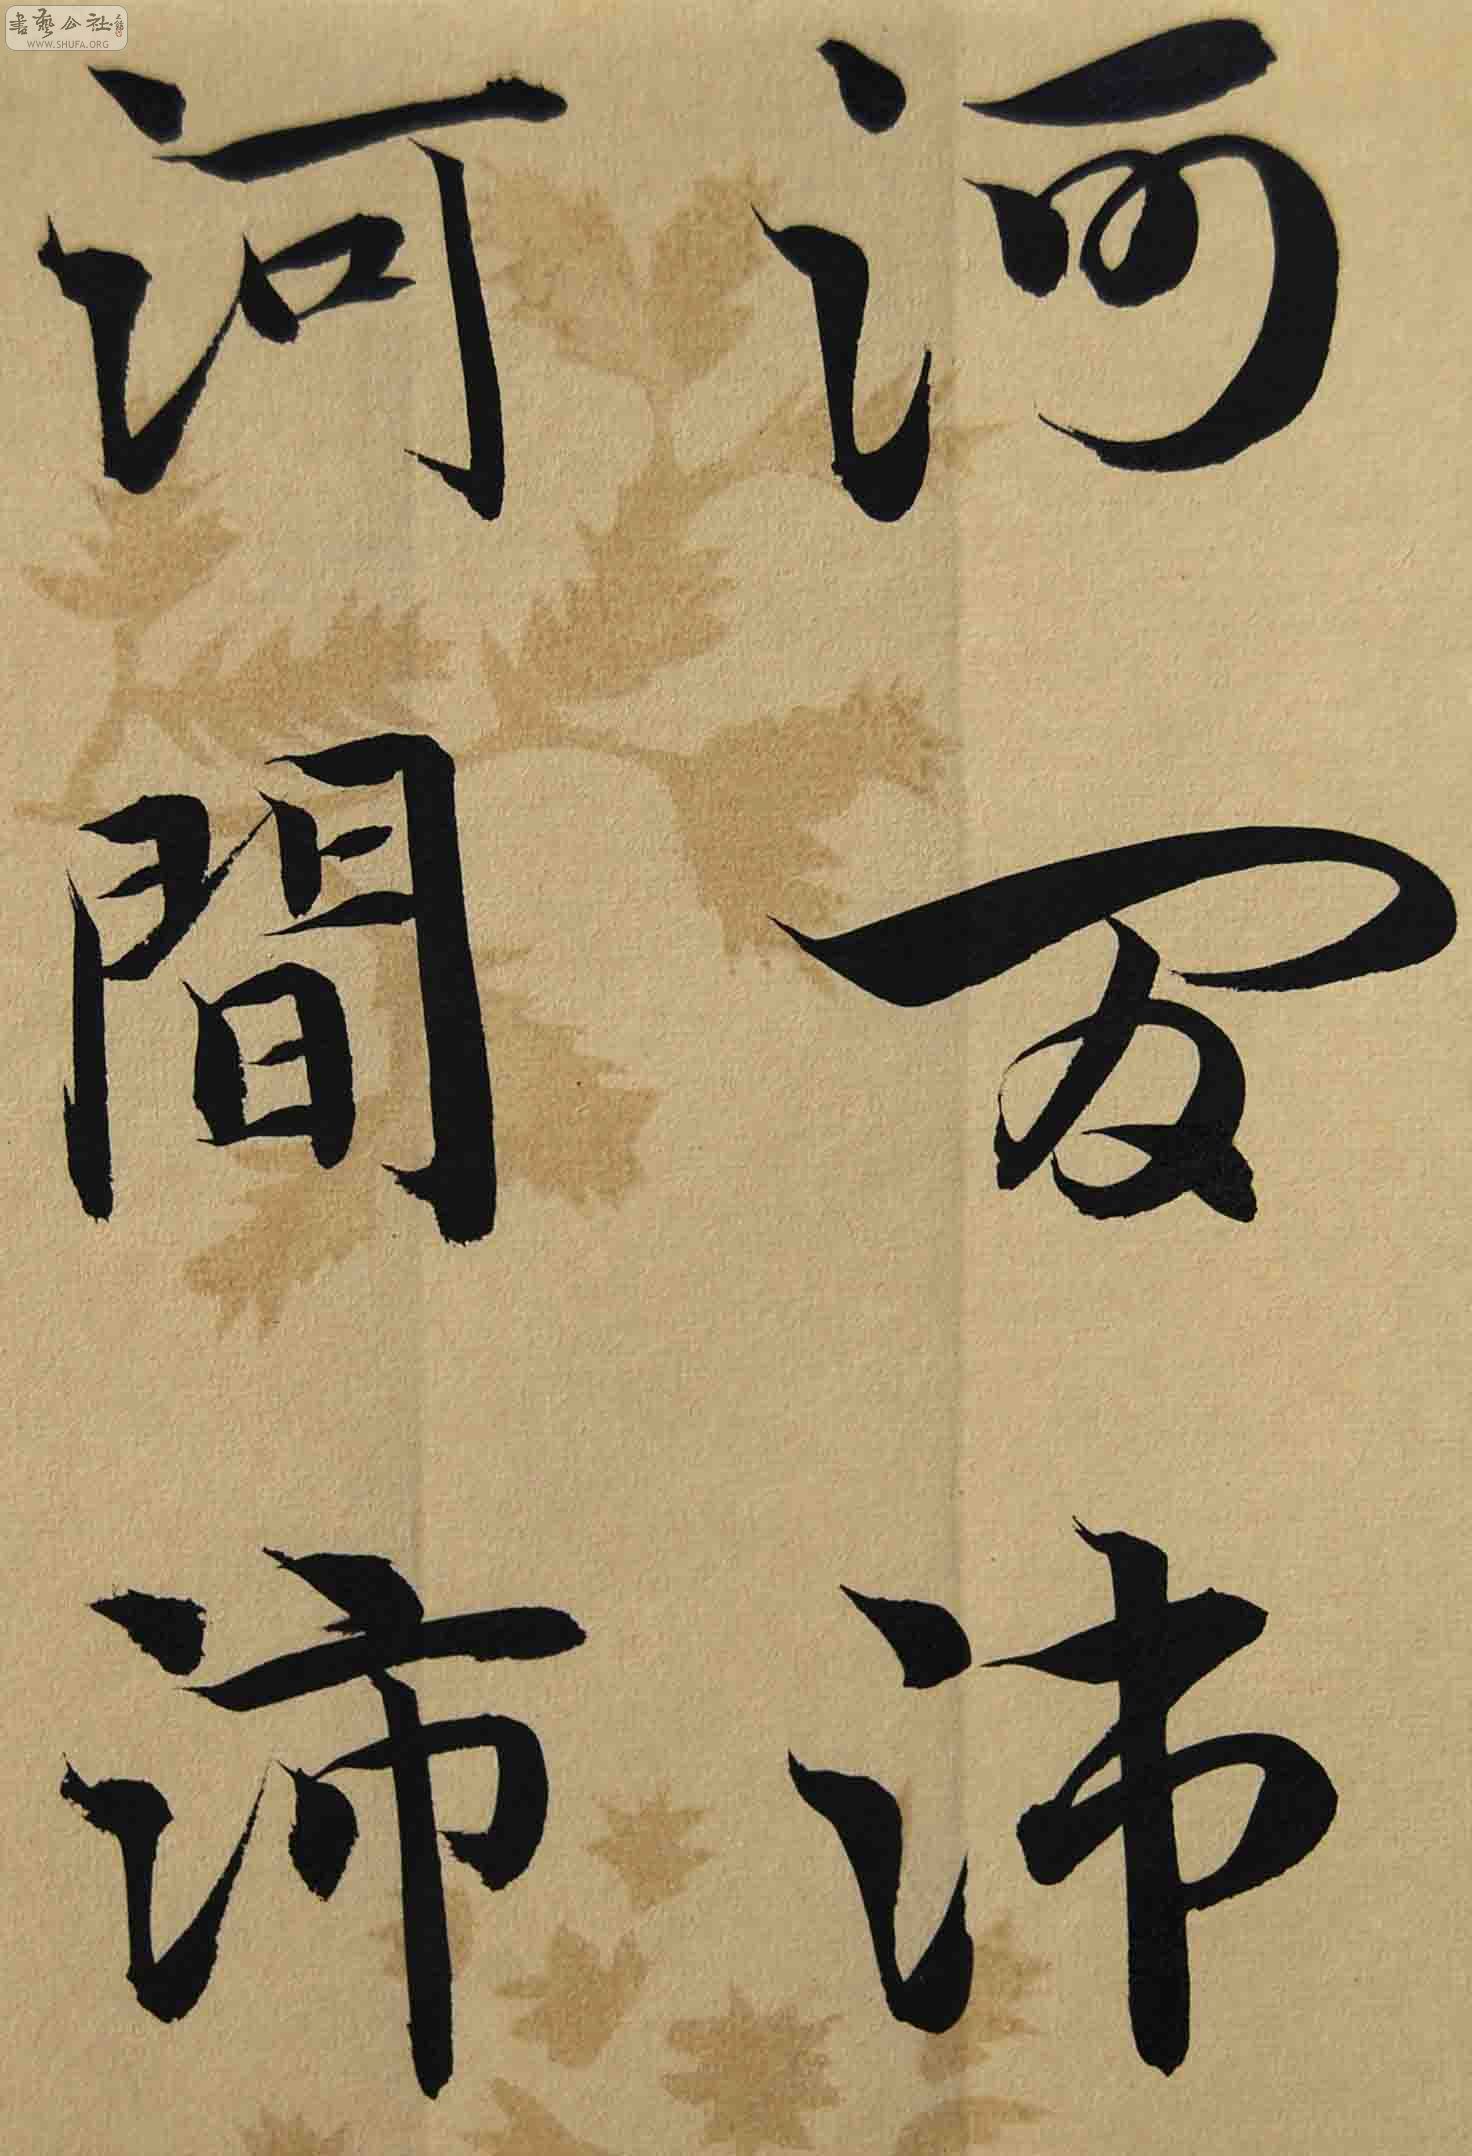 书艺公社
WWW.SHUFA.ORG
河間沛
河間沛